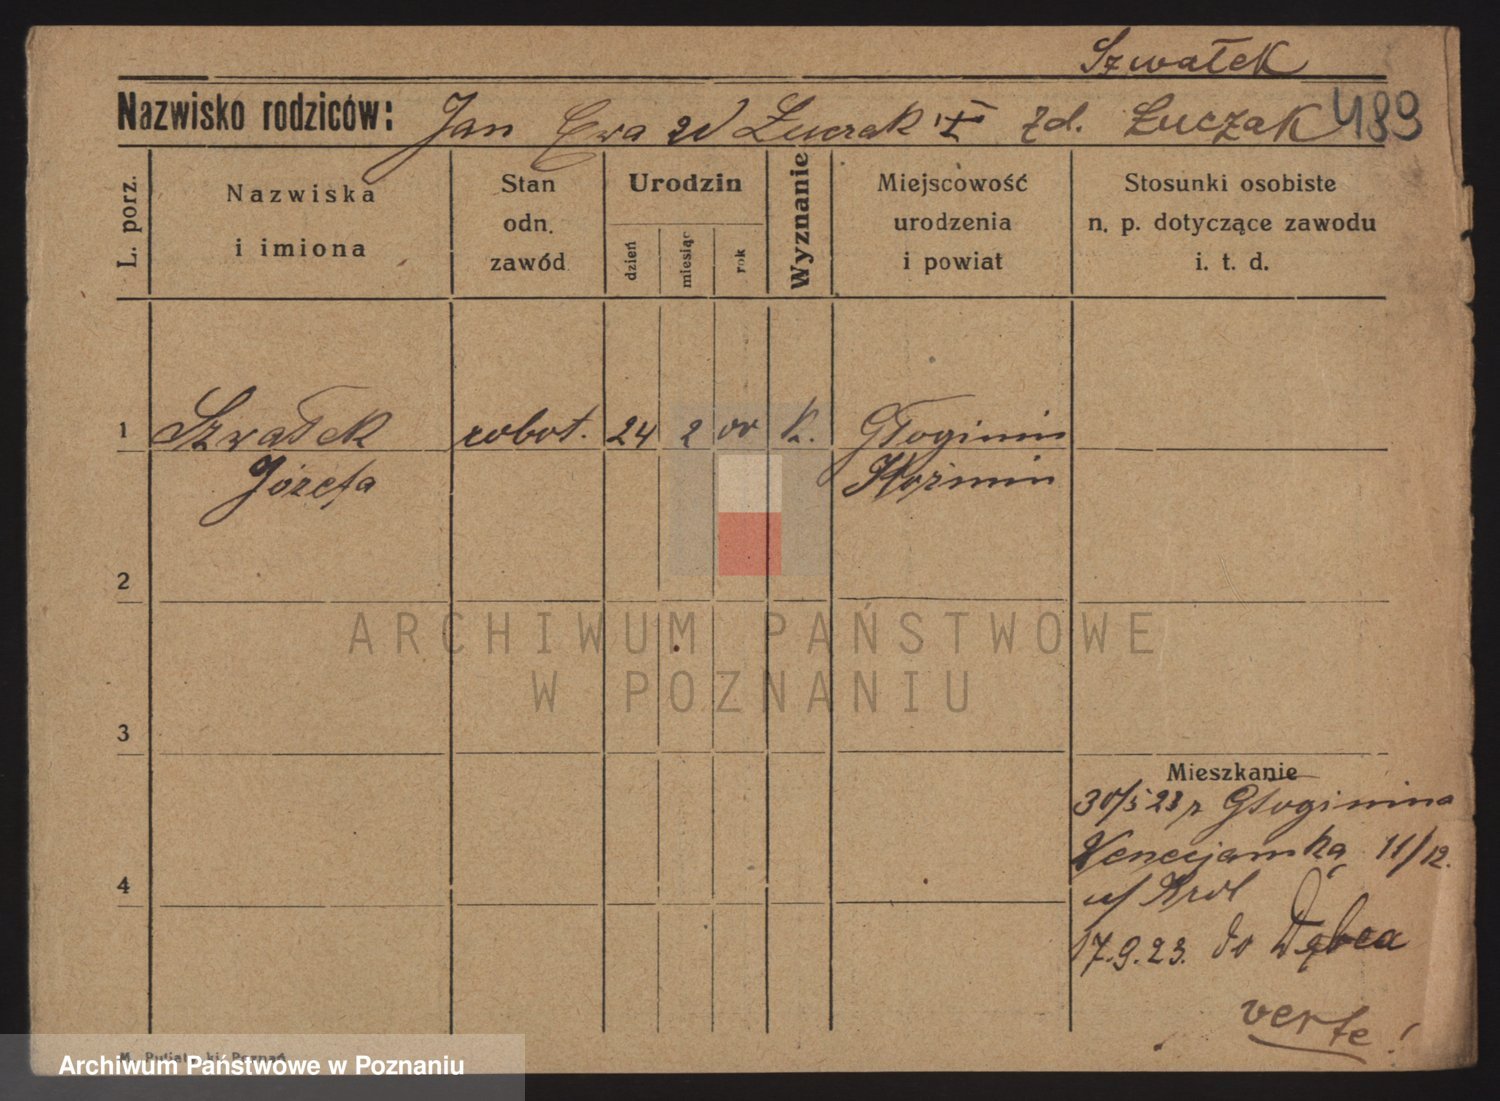 Szwałek
Nazwisko rodziców: Jan Ewa zd Łuczak zd. Łuczak 489
L. porz.
Nazwiska
i imiona
Stan
odn.
zawód
Urodzin
dzień
miesiąc
rok
Wyznanie
Miejscowość
urodzenia
i powiat
Stosunki osobiste
n. p. dotyczące zawodu
i. t. d.
1 Szwałek robot. 24 2 00 K. Głoginin
Józefa Koźmin
2
ARCHIWUM PAŃSTWOWE
W POZNANIU
3
Mieszkanie
30/5 23 z Głoginina
Wenecjańska 11/12.
4
u/ Król
17.9.23. do Dębca
verte!
Archiwum Państwowe w Poznaniu